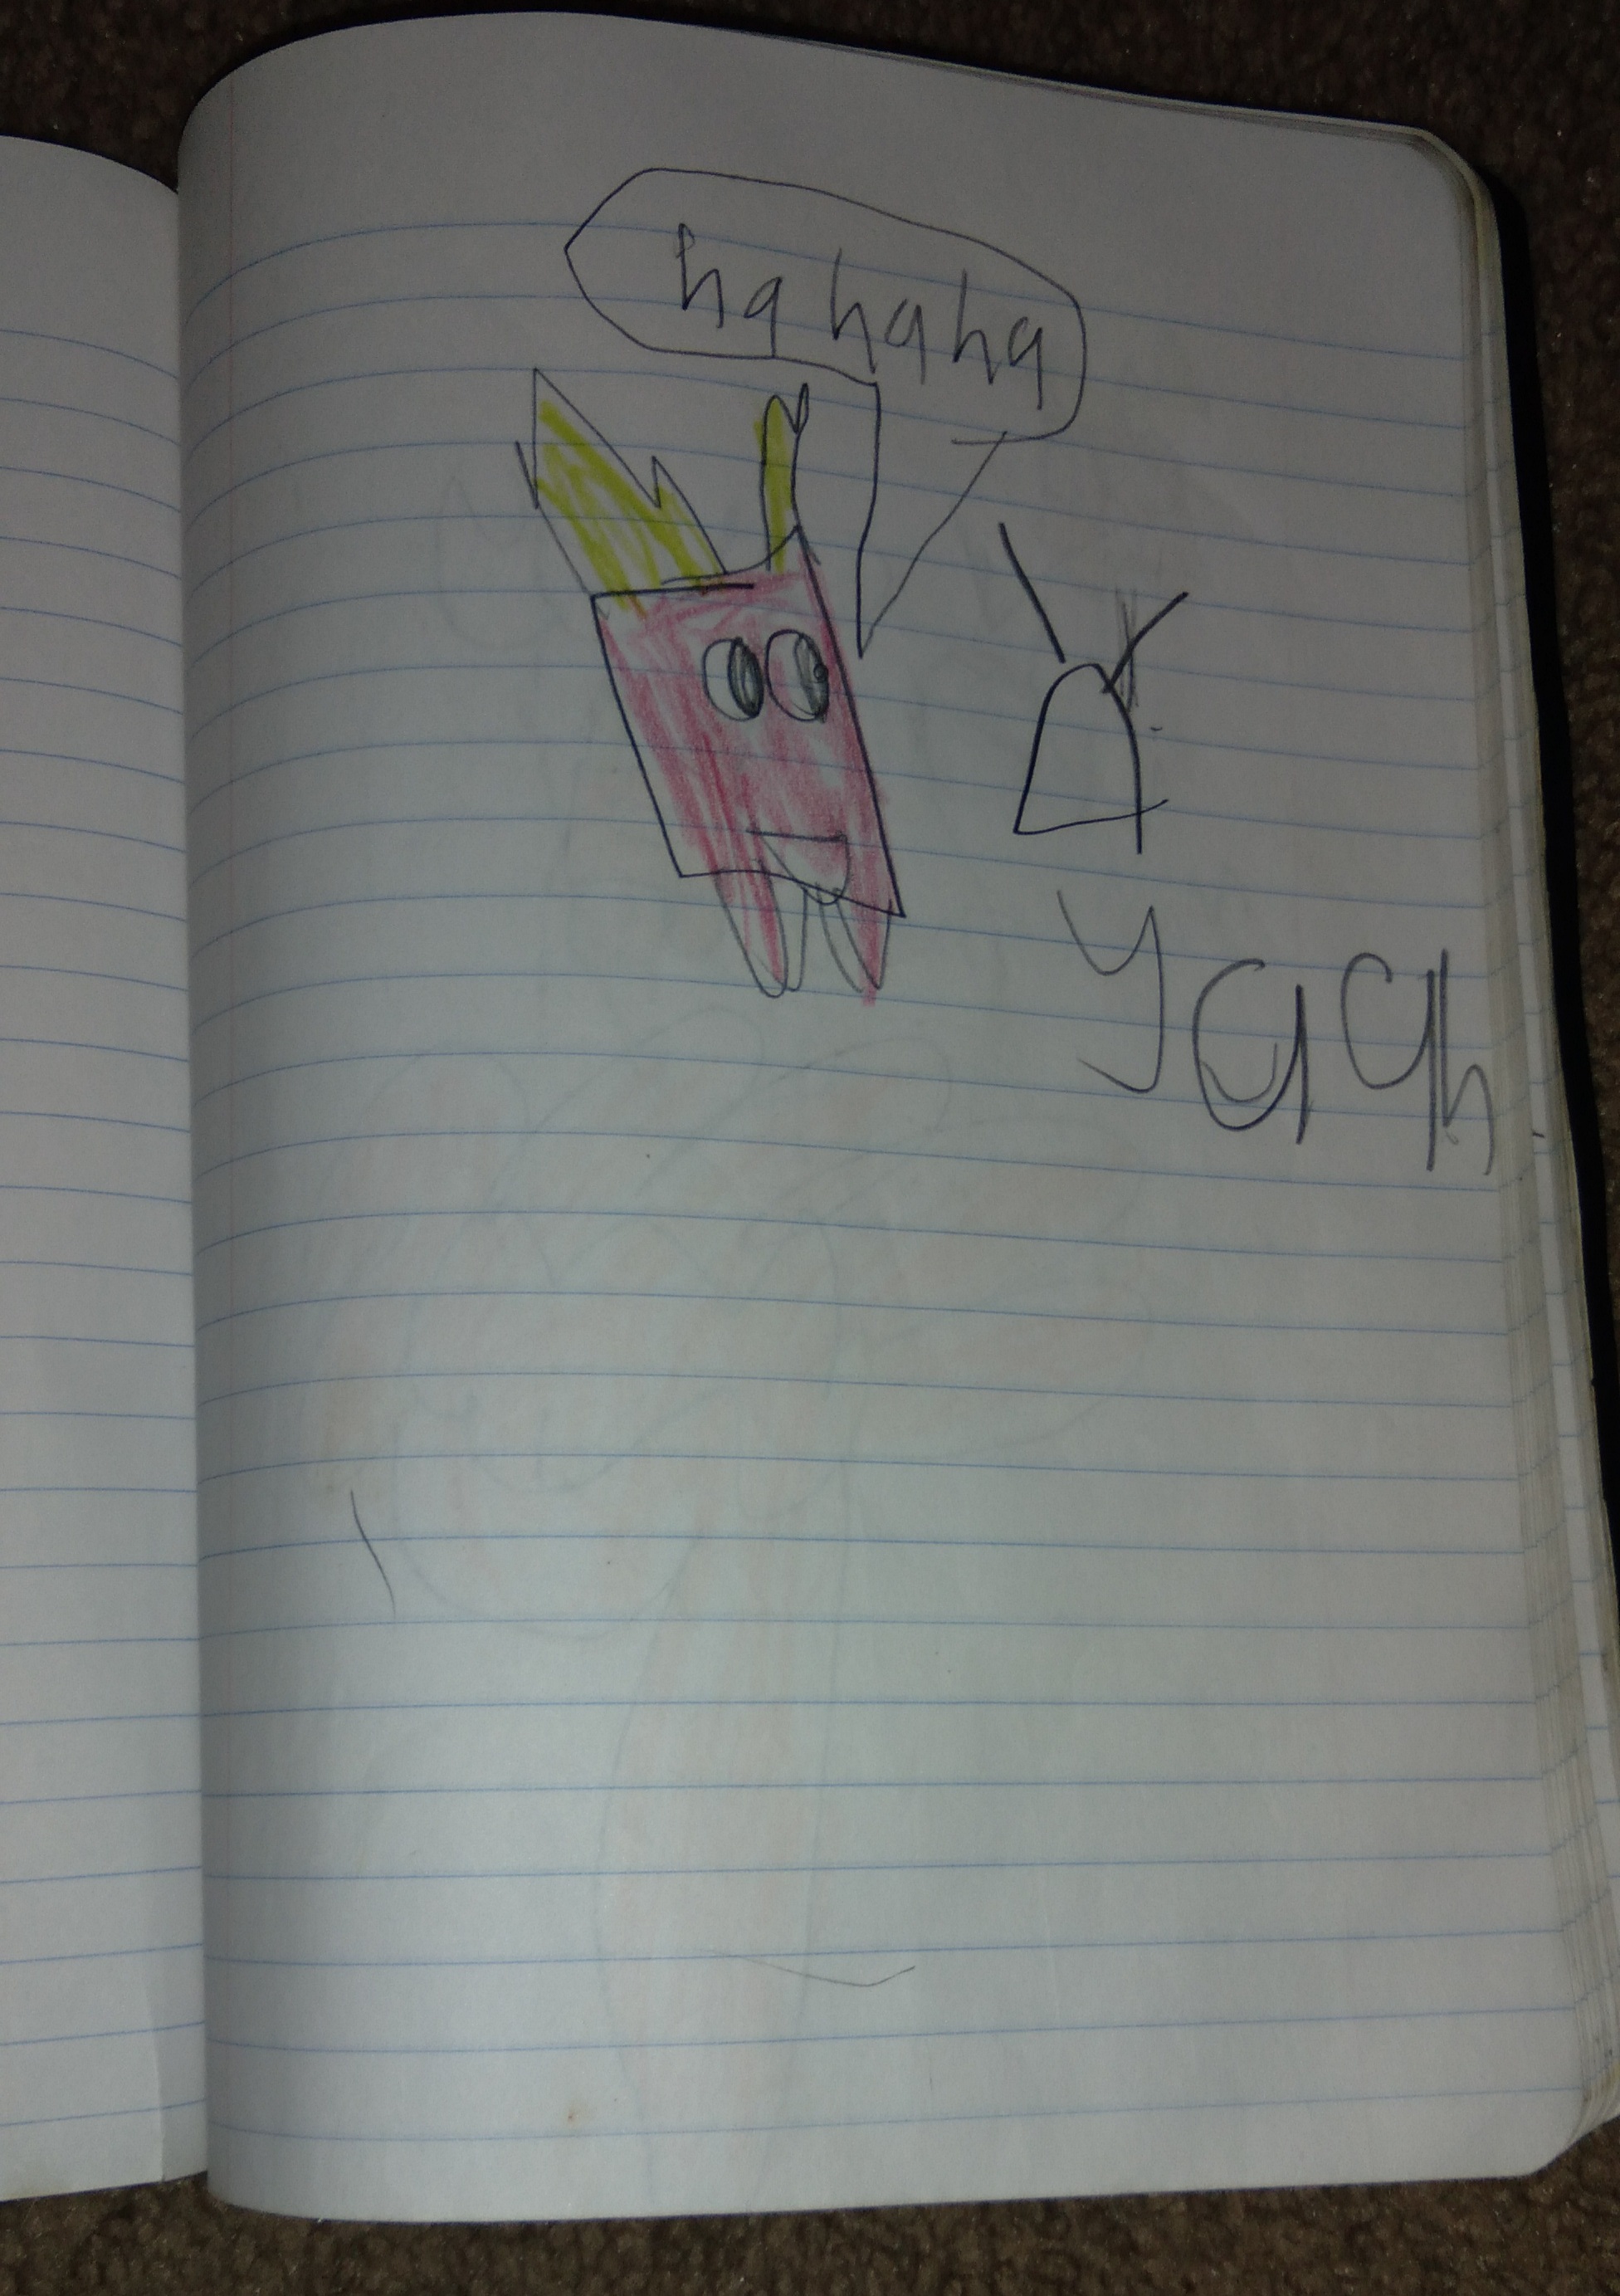 ha haha
yaah